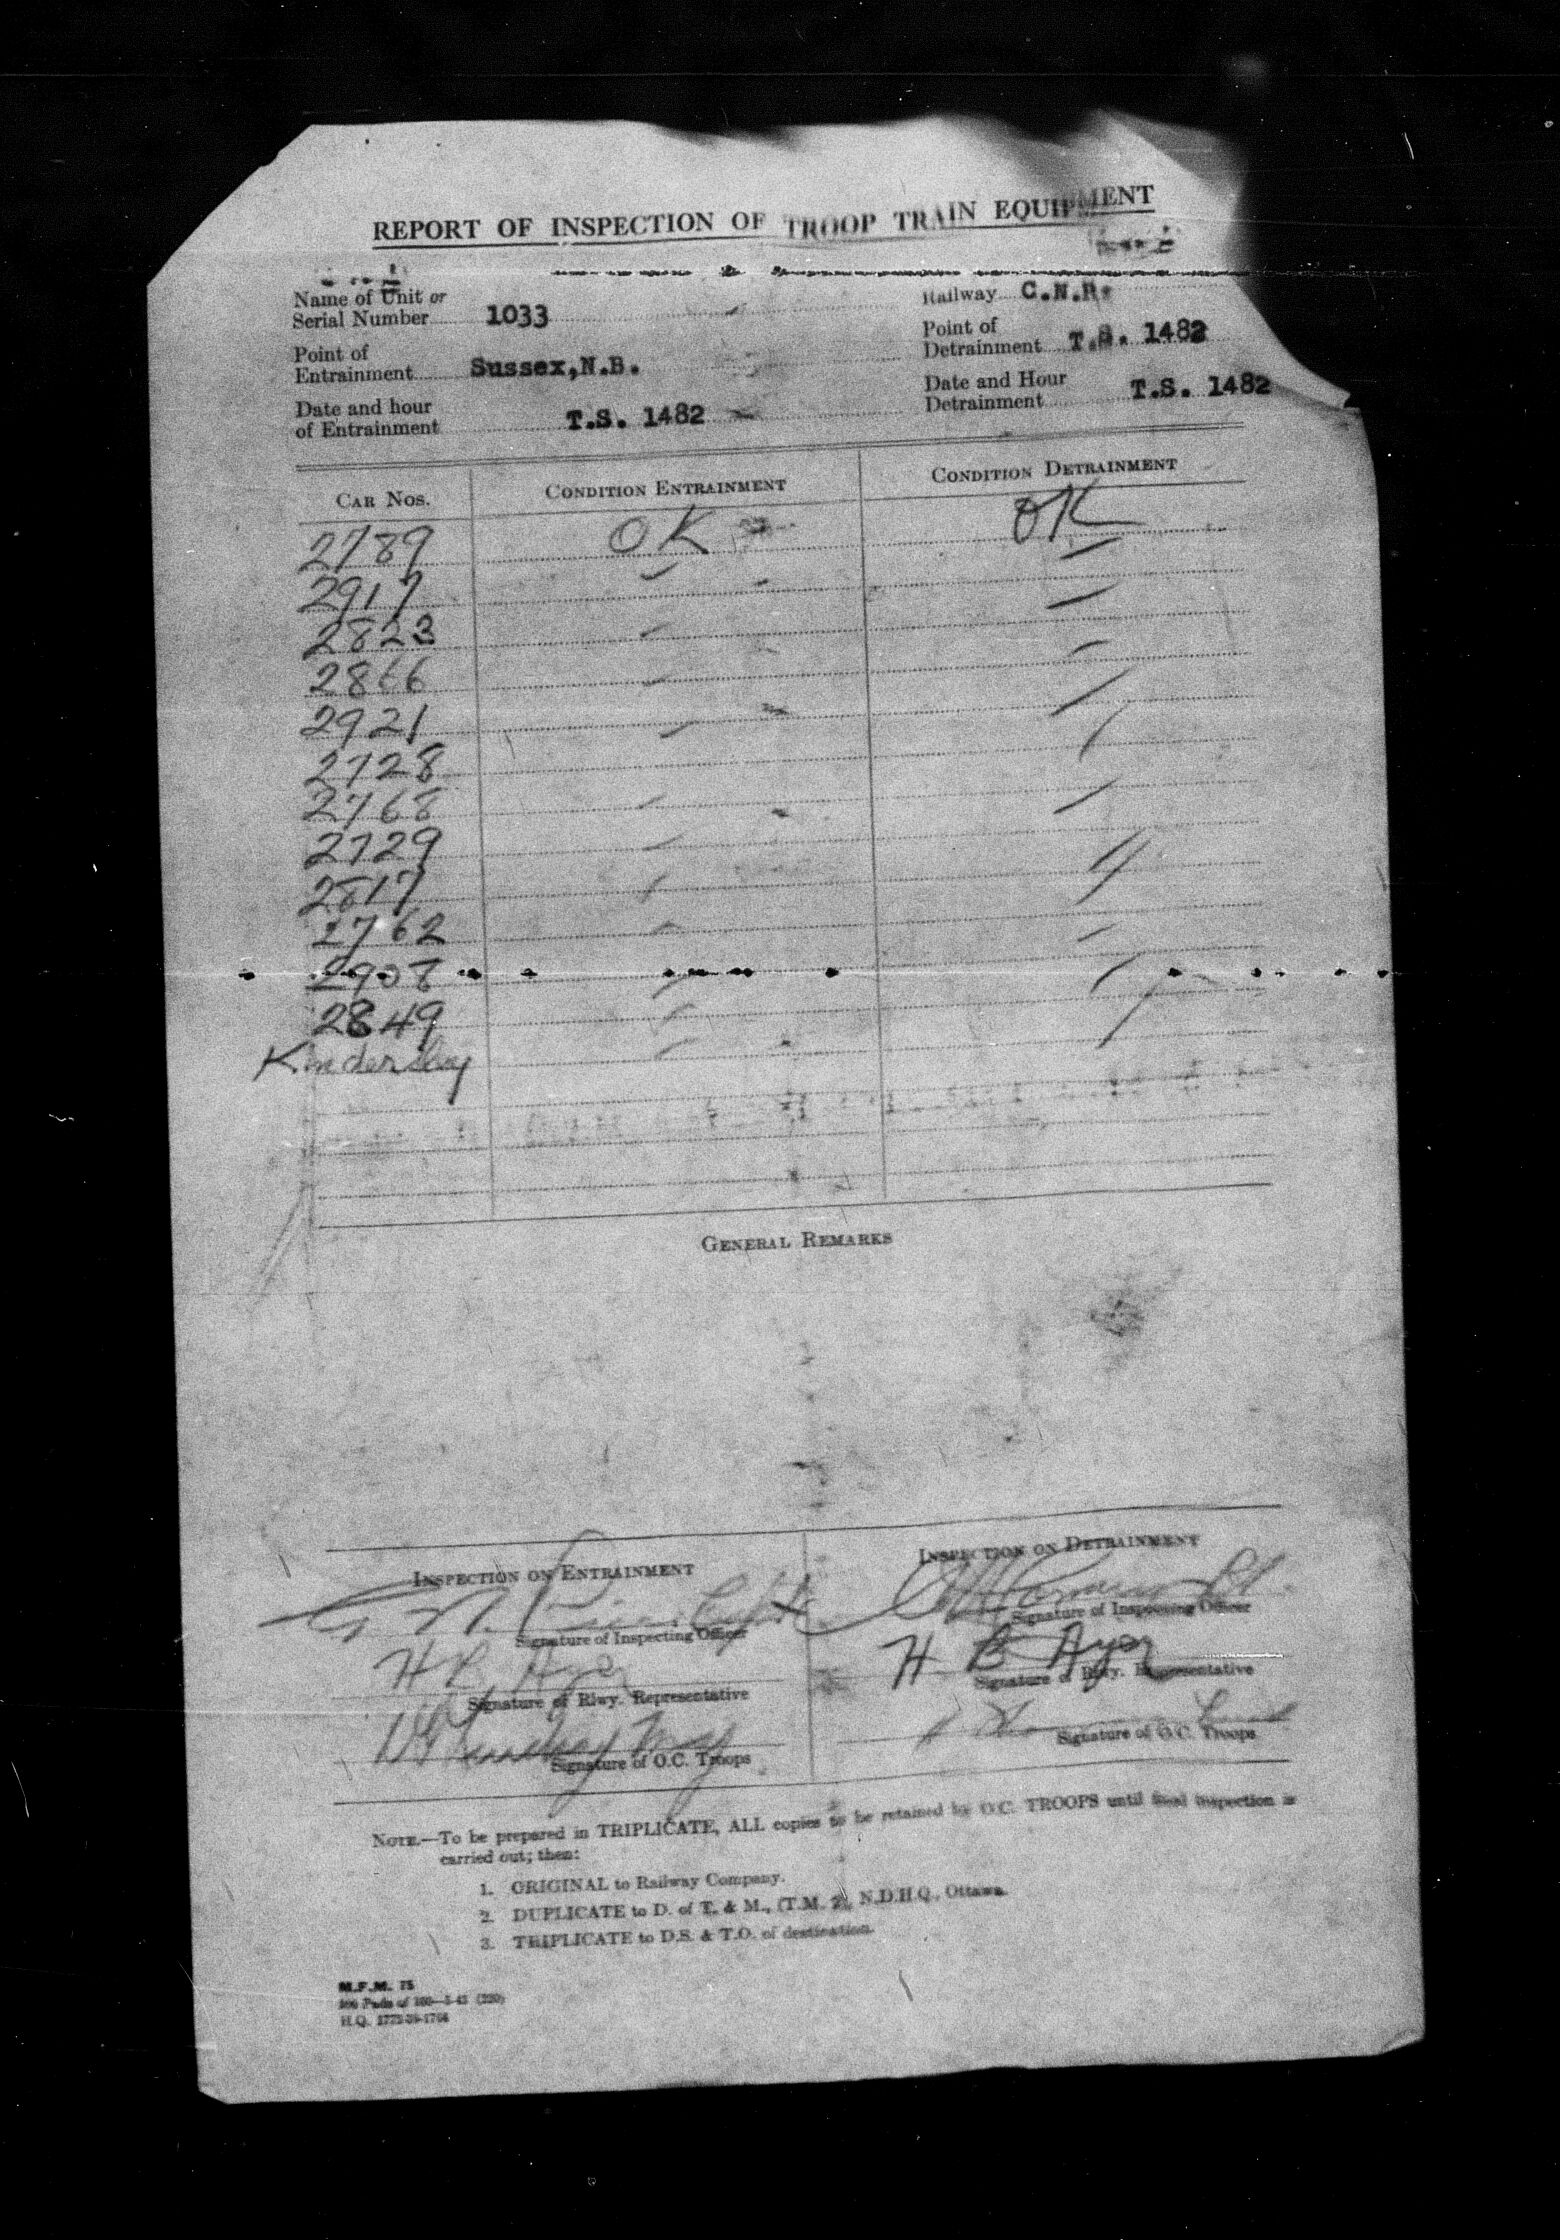 REPORT OF INSPECTION OF TROOP TRAIN EQUIPMENT
Name of Unit or
Serial Number 1033
Railway C.N.R.
Point of
Entrainment Sussex,N.B.
Point of
Detrainment T.S. 1482
Date and hour
of Entrainment T.S. 1482
Date and Hour
Detrainment T.S. 1482
CAR NOS. CONDITION ENTRAINMENT CONDITION DETRAINMENT
2789 OK OK
2917
2823
2866
2921
2728
2768
2729
2817
2762
2908
2849
Kindersley
GENERAL REMARKS
INSPECTION ON ENTRAINMENT
Signature of Inspecting Officer
H B Ayer
Signature of Rlwy. Representative
Signature of O.C. Troops
INSPECTION ON DETRAINMENT
Signature of Inspecting Officer
H B Ayer
Signature of Rlwy. Representative
Signature of O.C. Troops
NOTE.—To be prepared in TRIPLICATE, ALL copies to be retained by O.C. TROOPS until final inspection is
carried out; then:
1. ORIGINAL to Railway Company.
2. DUPLICATE to D. of T. & M., (T.M. 2), N.D.H.Q., Ottawa.
3. TRIPLICATE to D.S. & T.O. of destination.
M.F.M. 75
H.Q.